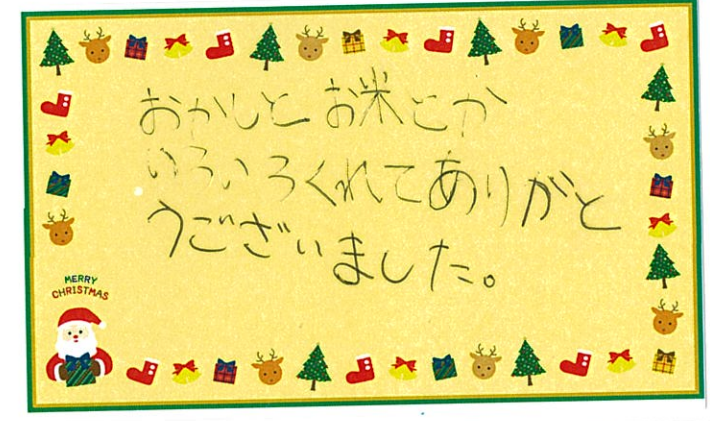 おかしと お米とか
いろいろくれてありがと
うございました。
MERRY
CHRISTMAS